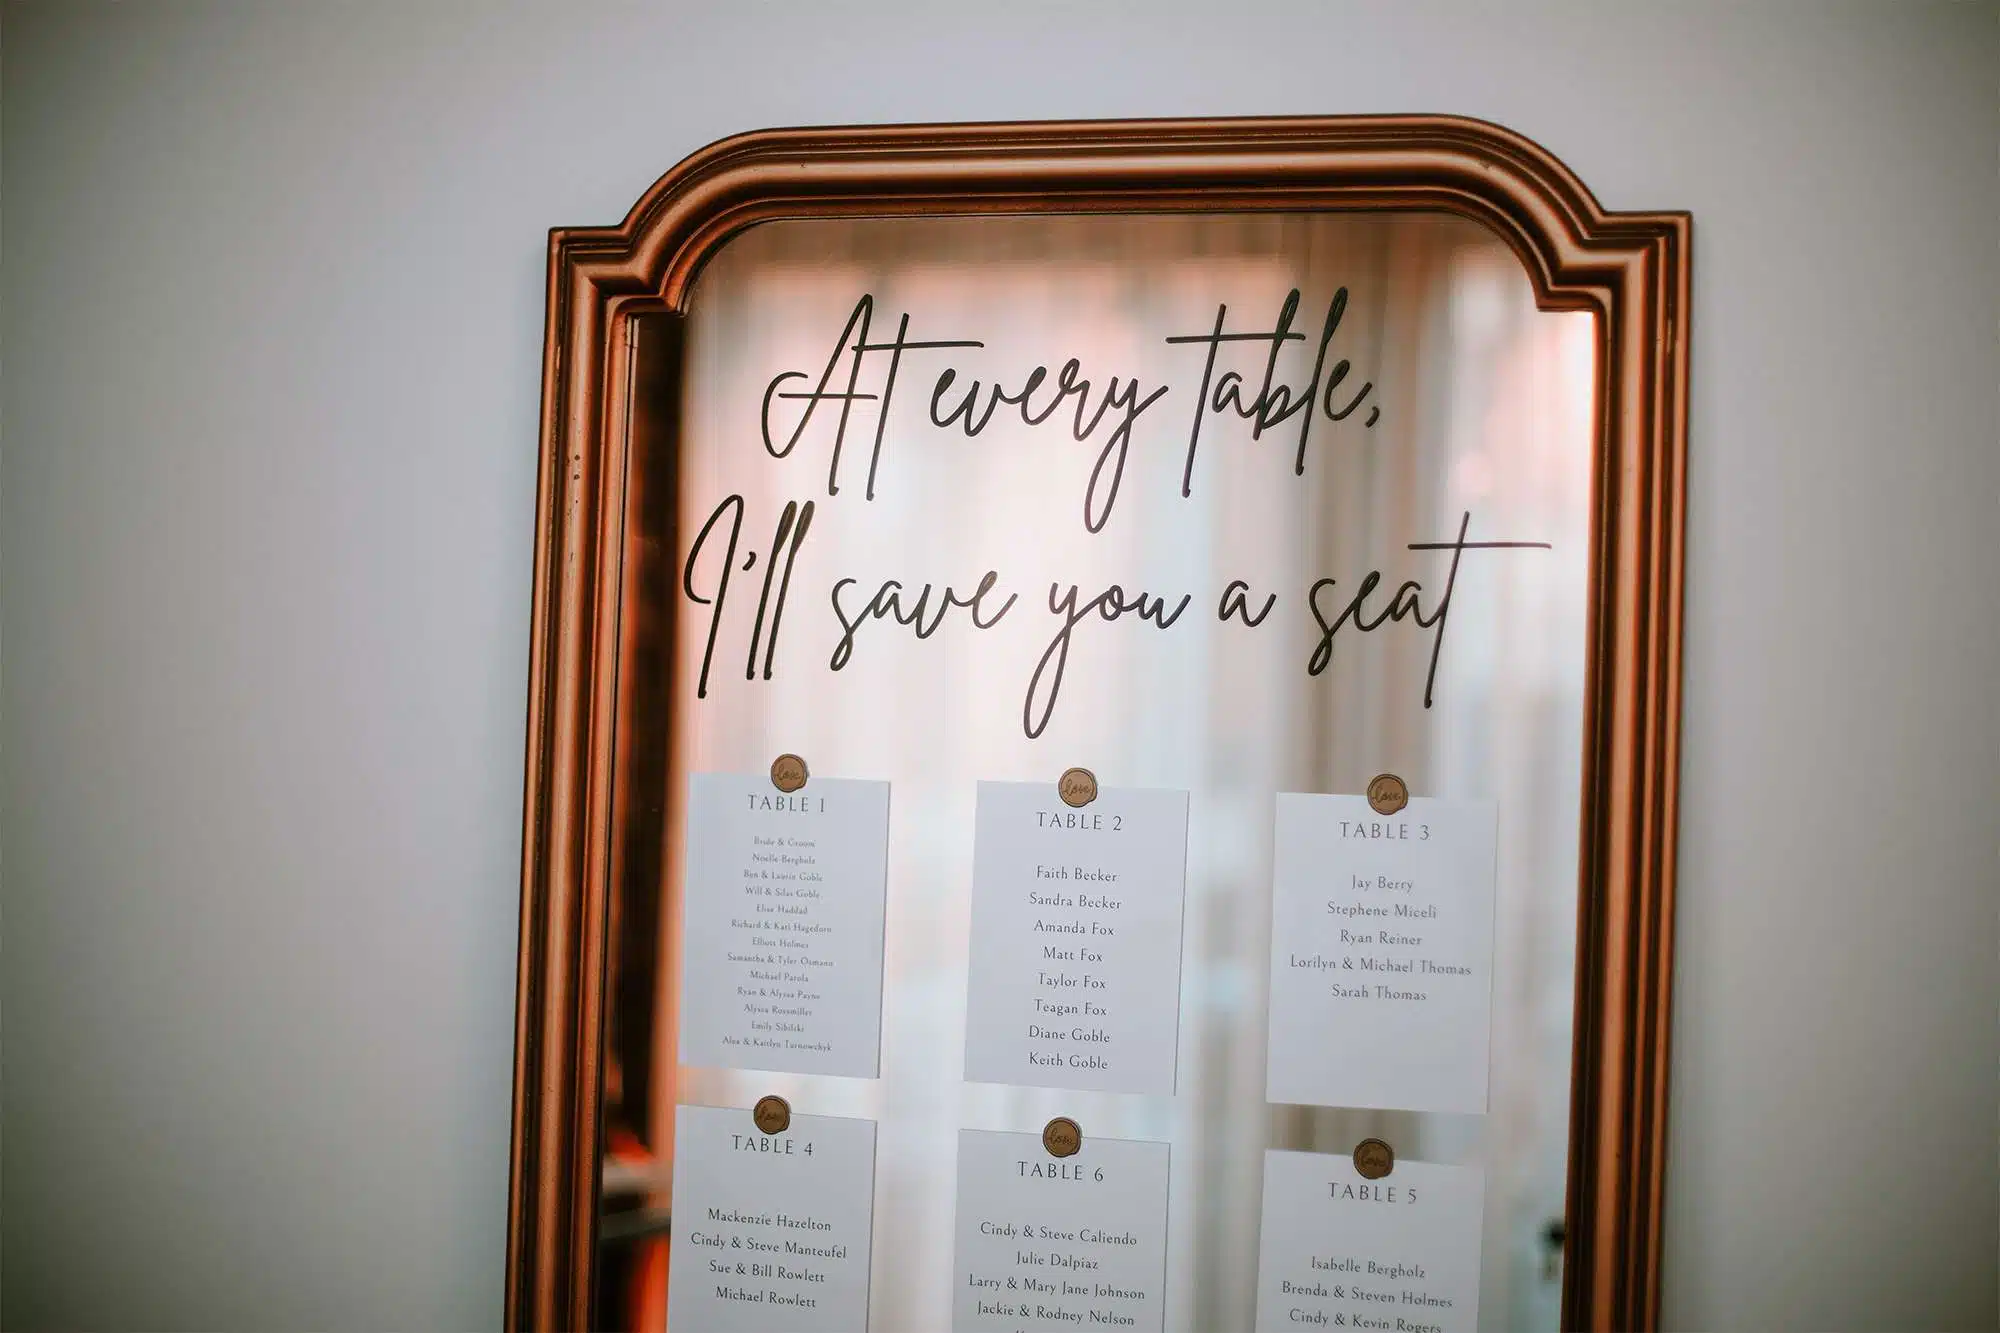 At every table,
I'll save you a seat
love
TABLE 1
Bride & Groom
Noelle Bergholz
Ben & Laurin Goble
Will & Silas Goble
Elise Haddad
Richard & Kati Hagedorn
Elliott Holmes
Samantha & Tyler Osmann
Michael Parola
Ryan & Alyssa Payne
Alyssa Rossmiller
Emily Sibilski
Alex & Kaitlyn Turnowchyk
love
TABLE 2
Faith Becker
Sandra Becker
Amanda Fox
Matt Fox
Taylor Fox
Teagan Fox
Diane Goble
Keith Goble
love
TABLE 3
Jay Berry
Stephene Miceli
Ryan Reiner
Lorilyn & Michael Thomas
Sarah Thomas
love
TABLE 4
Mackenzie Hazelton
Cindy & Steve Manteufel
Sue & Bill Rowlett
Michael Rowlett
love
TABLE 6
Cindy & Steve Caliendo
Julie Dalpiaz
Larry & Mary Jane Johnson
Jackie & Rodney Nelson
love
TABLE 5
Isabelle Bergholz
Brenda & Steven Holmes
Cindy & Kevin Rogers